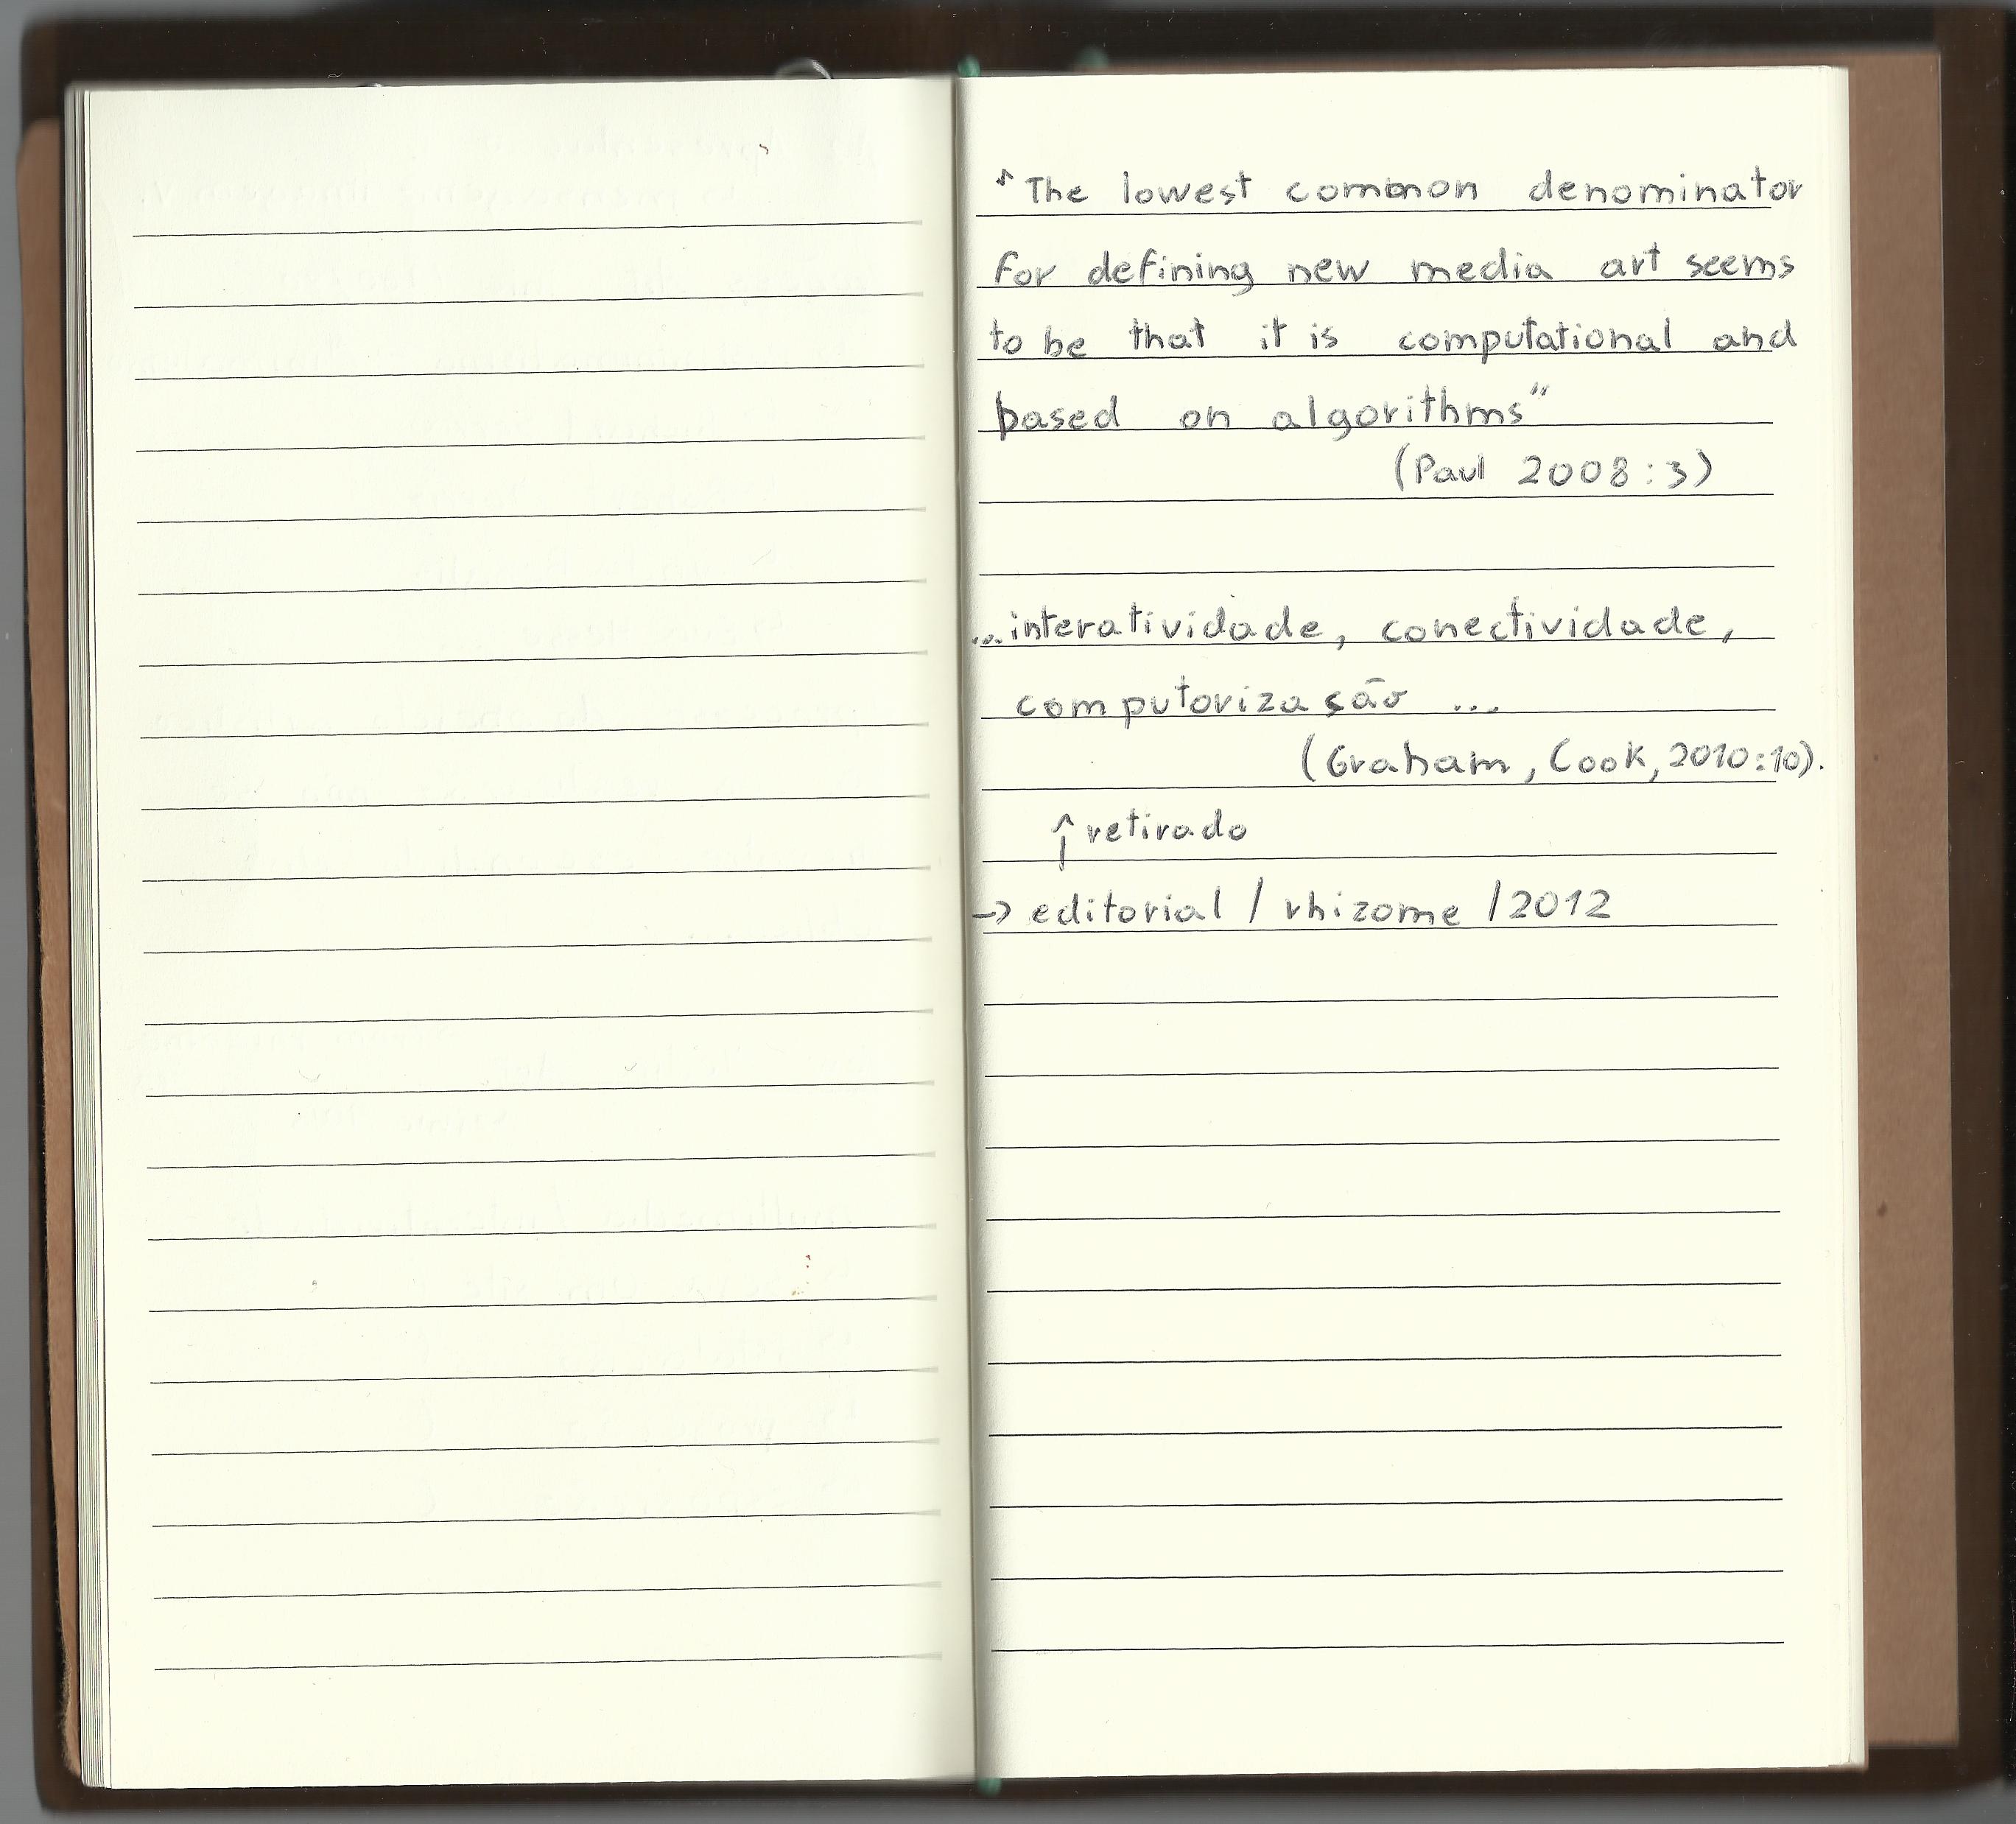 "The lowest common denominator
for defining new media art seems
to be that it is computational and
based on algorithms"
(Paul 2008:3)
...interatividade, conectividade,
computorização ...
(Graham, Cook, 2010:10).
↑ retirado
→ editorial / rhizome / 2012